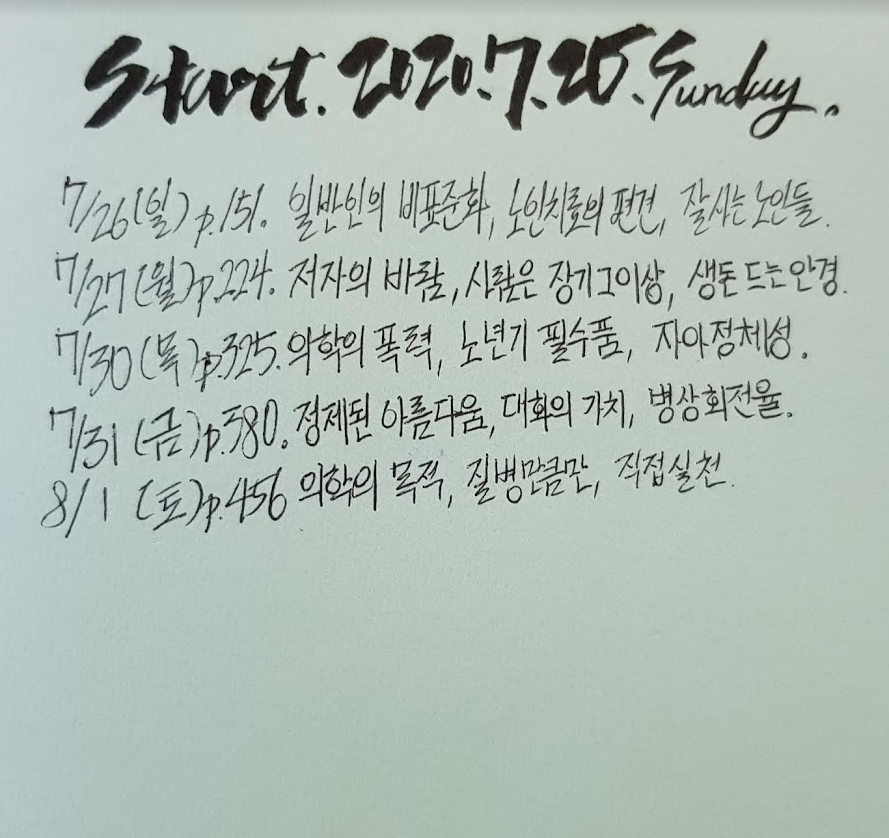 Start. 2020.7.25. Sunday.
7/26(일) p.151. 일반인의 비표준화, 노인치료의 편견, 잘사는 노인들.
7/27(월)p.224. 저자의 바람, 사람은 장기 그이상, 생돈 드는 안경.
7/30(목)p.325. 의학의 폭력, 노년기 필수품, 자아정체성.
7/31(금)p.380. 정제된 아름다움, 대화의 가치, 병상회전율.
8/1 (토)p.456 의학의 목적, 질병만큼만, 직접실천.